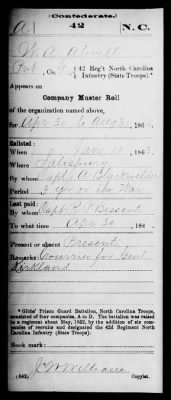 (Confederate.)
A 42 N.C.
W. A. Atwell
Pvt, Co. 42 Reg't North Carolina
Infantry (State Troops).*
Appears on
Company Muster Roll
of the organization named above,
for Apr 30 to Aug 31, 186
Enlisted:
When 186
Where Salisbury
By whom Capt. J. A. Blackwelder
Period 3 yrs or the War
Last paid:
By whom Capt. R. P. Bessent
To what time Apr 30, 186
Present or absent Present
Remarks: Courier for Genl.
Kirkland
* Gibbs' Prison Guard Battalion, North Carolina Troops,
consisted of four companies, A to D. The battalion was raised
to a regiment about May, 1862, by the addition of six com-
panies of recruits and designated the 42d Regiment North
Carolina Infantry (State Troops).
Book mark:
J. W. Williams
(642) Copyist.